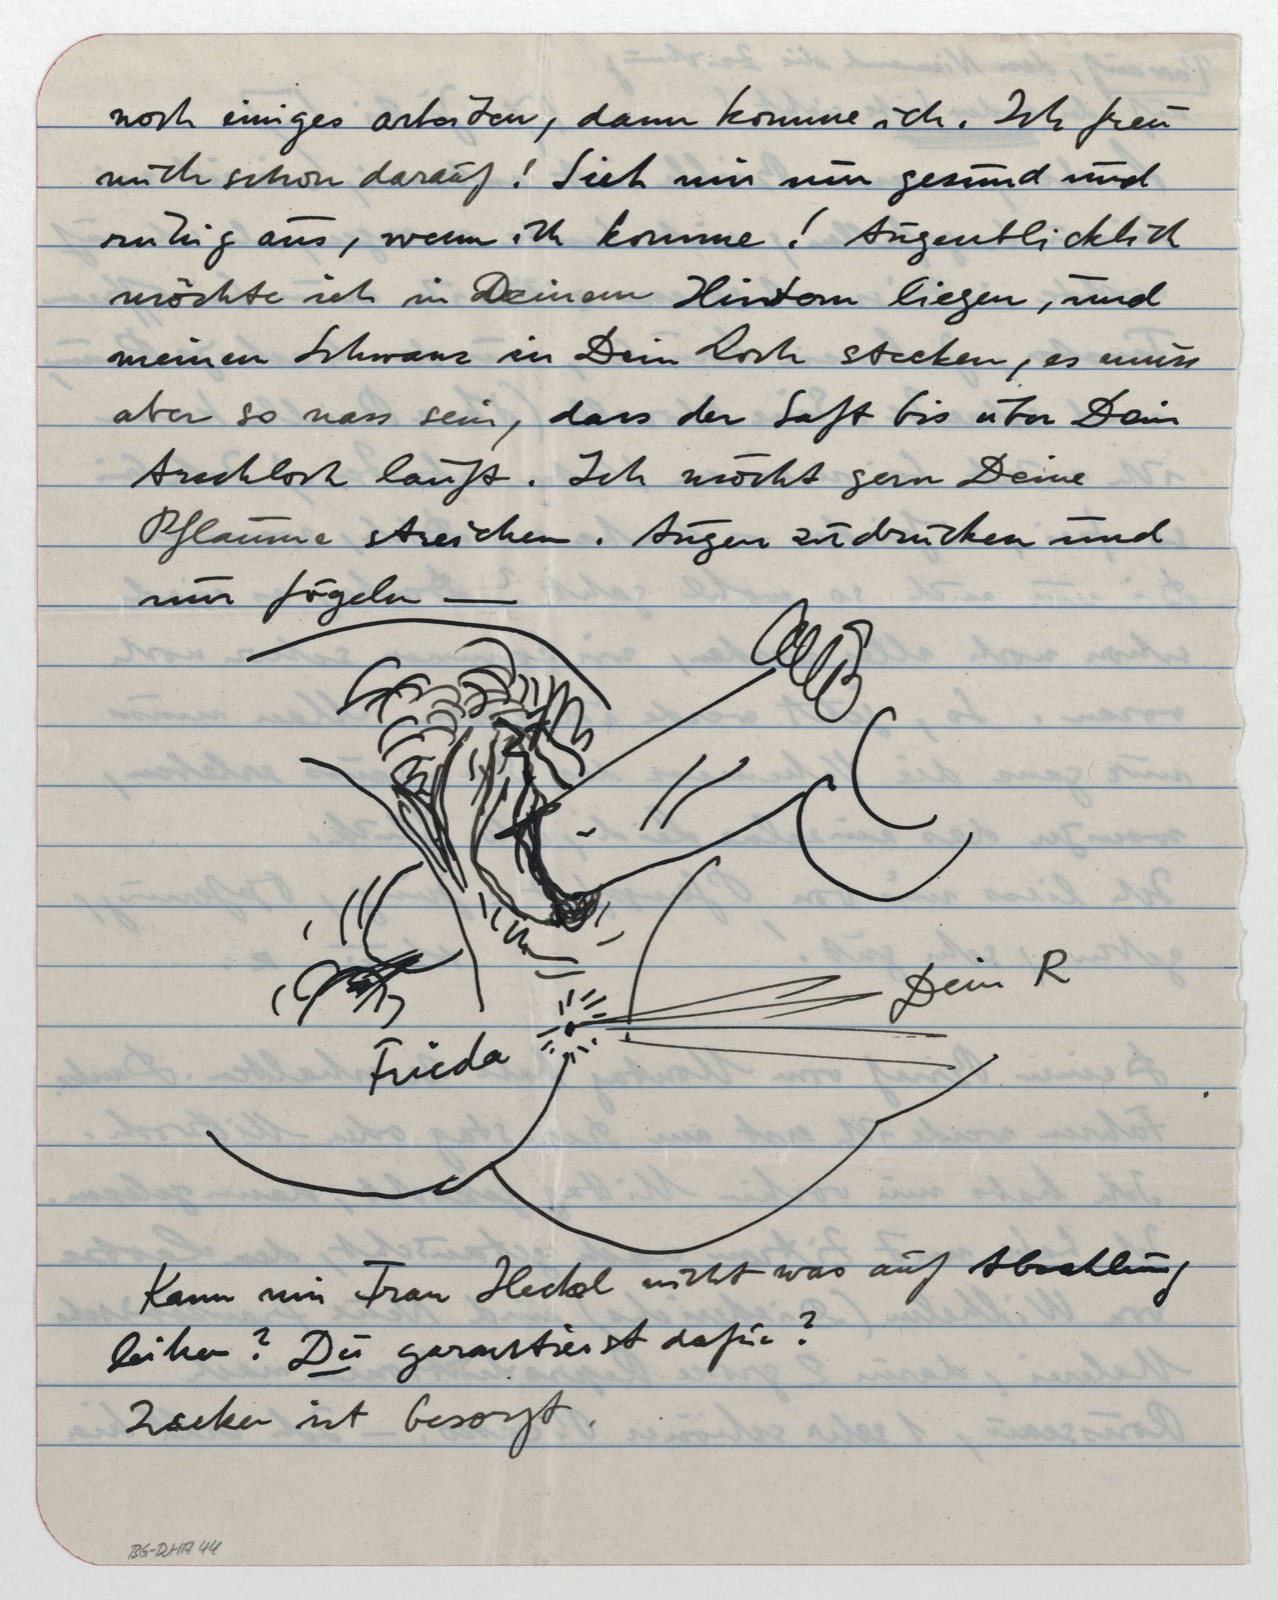 noch einiges arbeiten, dann komme ich. Ich freu
mich schon darauf! Sieh mir nur gesund und
ruhig aus, wenn ich komme! Augenblicklich
möchte ich in Deinem Hintern liegen, und
meinen Schwanz in Dein Loch stecken, es muss
aber so nass sein, dass der Saft bis über Dein
Arschloch läuft. Ich möcht gern Deine
Pflaume streichen. Augen zudrücken und
nur fögeln —
Dein R
Frieda
Kann mir Frau Heckel nicht was auf Abzahlung
leihen? Du garantierst dafür?
Zucker ist besorgt.
BG-DHA 44